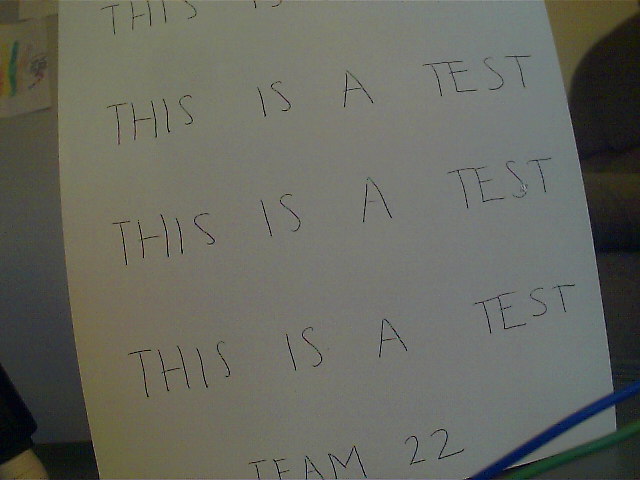 THIS IS
THIS IS A TEST
THIS IS A TEST
THIS IS A TEST
TEAM 22